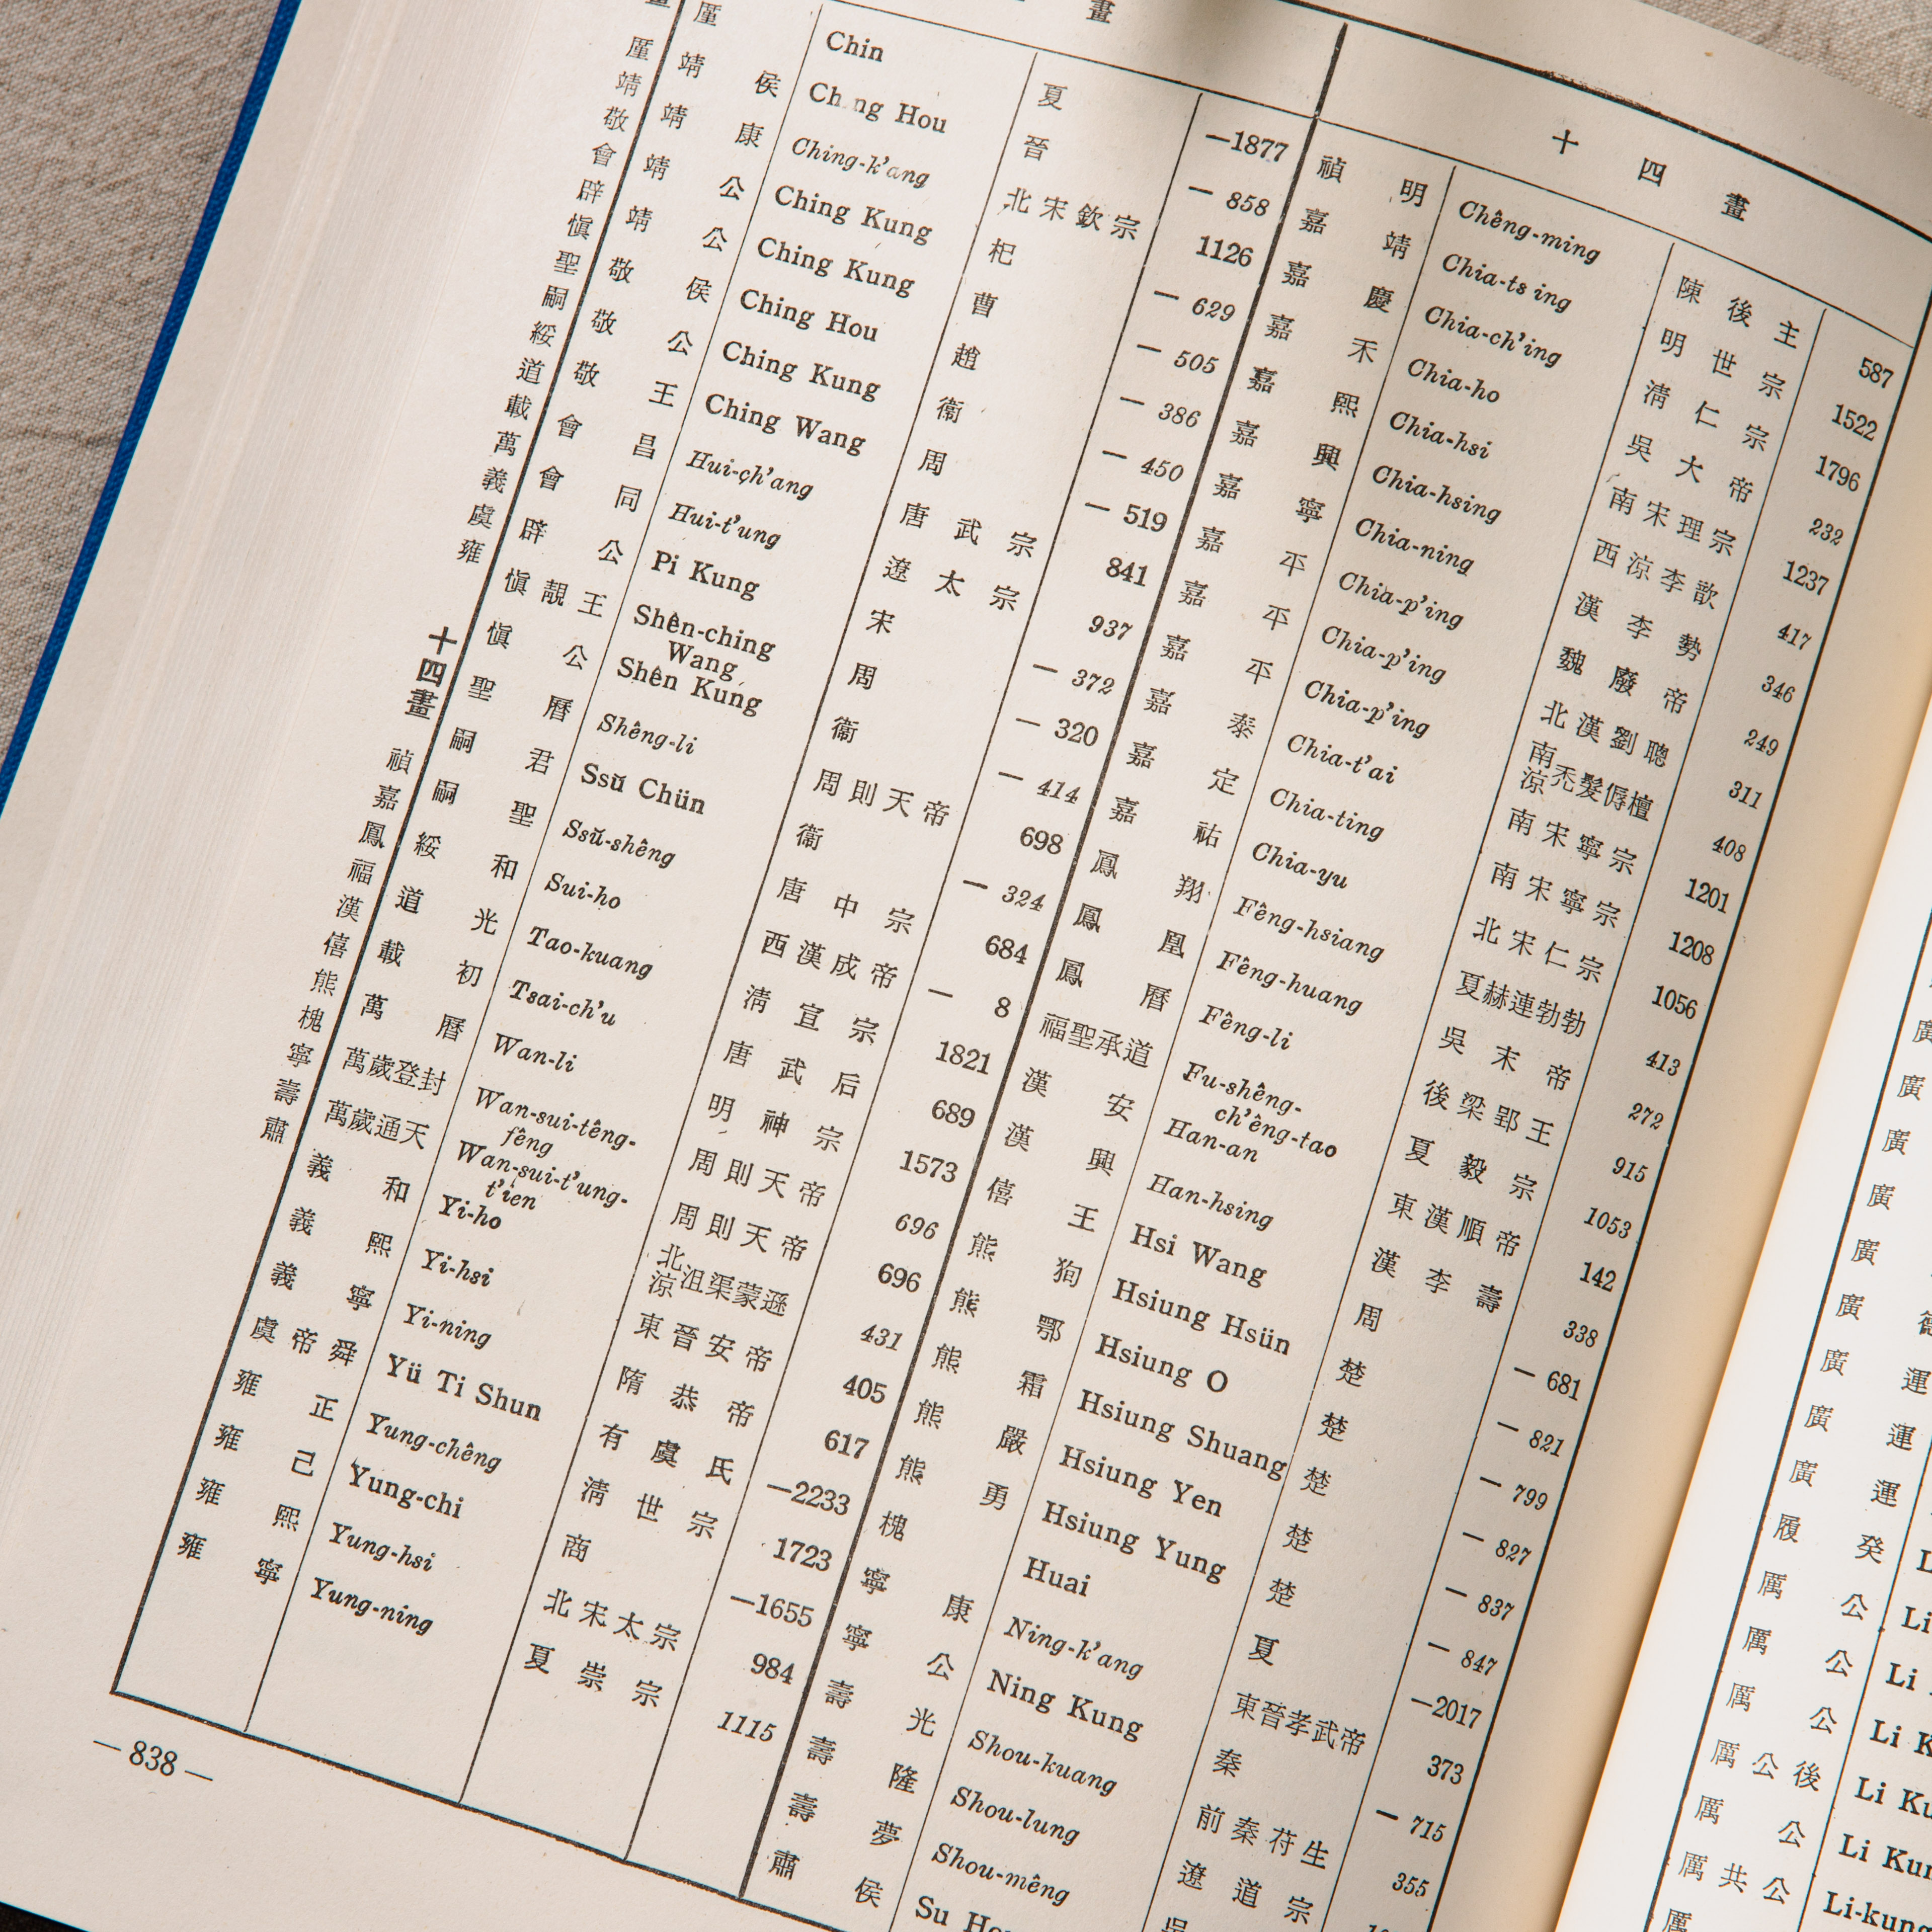 畫
厪 Chin 夏 —1877
靖侯 Ch ng Hou 晉 — 858
靖康 Ching-k’ang 北宋欽宗 1126
靖公 Ching Kung 杞 — 629
靖公 Ching Kung 曹 — 505
敬侯 Ching Hou 趙 — 386
敬公 Ching Kung 衞 — 450
敬王 Ching Wang 周 — 519
會昌 Hui-ch’ang 唐武宗 841
會同 Hui-t’ung 遼太宗 937
辟公 Pi Kung 宋 — 372
愼靚王 Shên-ching Wang 周 — 320
愼公 Shên Kung 衞 — 414
聖曆 Shêng-li 周則天帝 698
嗣君 Ssŭ Chün 衞 — 324
嗣聖 Ssŭ-shêng 唐中宗 684
綏和 Sui-ho 西漢成帝 — 8
道光 Tao-kuang 淸宣宗 1821
載初 Tsai-ch’u 唐武后 689
萬曆 Wan-li 明神宗 1573
萬歲登封 Wan-sui-têng-fêng 周則天帝 696
萬歲通天 Wan-sui-t’ung-t’ien 周則天帝 696
義和 Yi-ho 北涼沮渠蒙遜 431
義熙 Yi-hsi 東晉安帝 405
義寧 Yi-ning 隋恭帝 617
虞帝舜 Yü Ti Shun 有虞氏 —2233
雍正 Yung-chêng 淸世宗 1723
雍己 Yung-chi 商 —1655
雍熙 Yung-hsi 北宋太宗 984
雍寧 Yung-ning 夏崇宗 1115
十四畫
禎明 Chêng-ming 陳後主 587
嘉靖 Chia-ts ing 明世宗 1522
嘉慶 Chia-ch’ing 淸仁宗 1796
嘉禾 Chia-ho 吳大帝 232
嘉熙 Chia-hsi 南宋理宗 1237
嘉興 Chia-hsing 西涼李歆 417
嘉寧 Chia-ning 漢李勢 346
嘉平 Chia-p’ing 魏廢帝 249
嘉平 Chia-p’ing 北漢劉聰 311
嘉平 Chia-p’ing 南涼禿髮傉檀 408
嘉泰 Chia-t’ai 南宋寧宗 1201
嘉定 Chia-ting 南宋寧宗 1208
嘉祐 Chia-yu 北宋仁宗 1056
鳳翔 Fêng-hsiang 夏赫連勃勃 413
鳳凰 Fêng-huang 吳末帝 272
鳳曆 Fêng-li 後梁郢王 915
福聖承道 Fu-shêng-ch’êng-tao 夏毅宗 1053
漢安 Han-an 東漢順帝 142
漢興 Han-hsing 漢李壽 338
僖王 Hsi Wang 周 — 681
熊狥 Hsiung Hsün 楚 — 821
熊鄂 Hsiung O 楚 — 799
熊霜 Hsiung Shuang 楚 — 827
熊嚴 Hsiung Yen 楚 — 837
熊勇 Hsiung Yung 楚 — 847
槐 Huai 夏 —2017
寧康 Ning-k’ang 東晉孝武帝 373
寧公 Ning Kung 秦 — 715
壽光 Shou-kuang 前秦苻生 355
壽隆 Shou-lung 遼道宗
壽夢 Shou-mêng 吳
肅侯 Su
厪靖敬會辟愼聖嗣綏道載萬義虞雍
十四畫
禎嘉鳳福漢僖熊槐寧壽肅
— 838 —
廣
廣
廣
廣
廣
廣 運
廣 運
廣 運
履癸
厲公 Li
厲公 Li
厲公 Li
厲公後 Li
厲公 Li
厲共公 Li-kung
厲